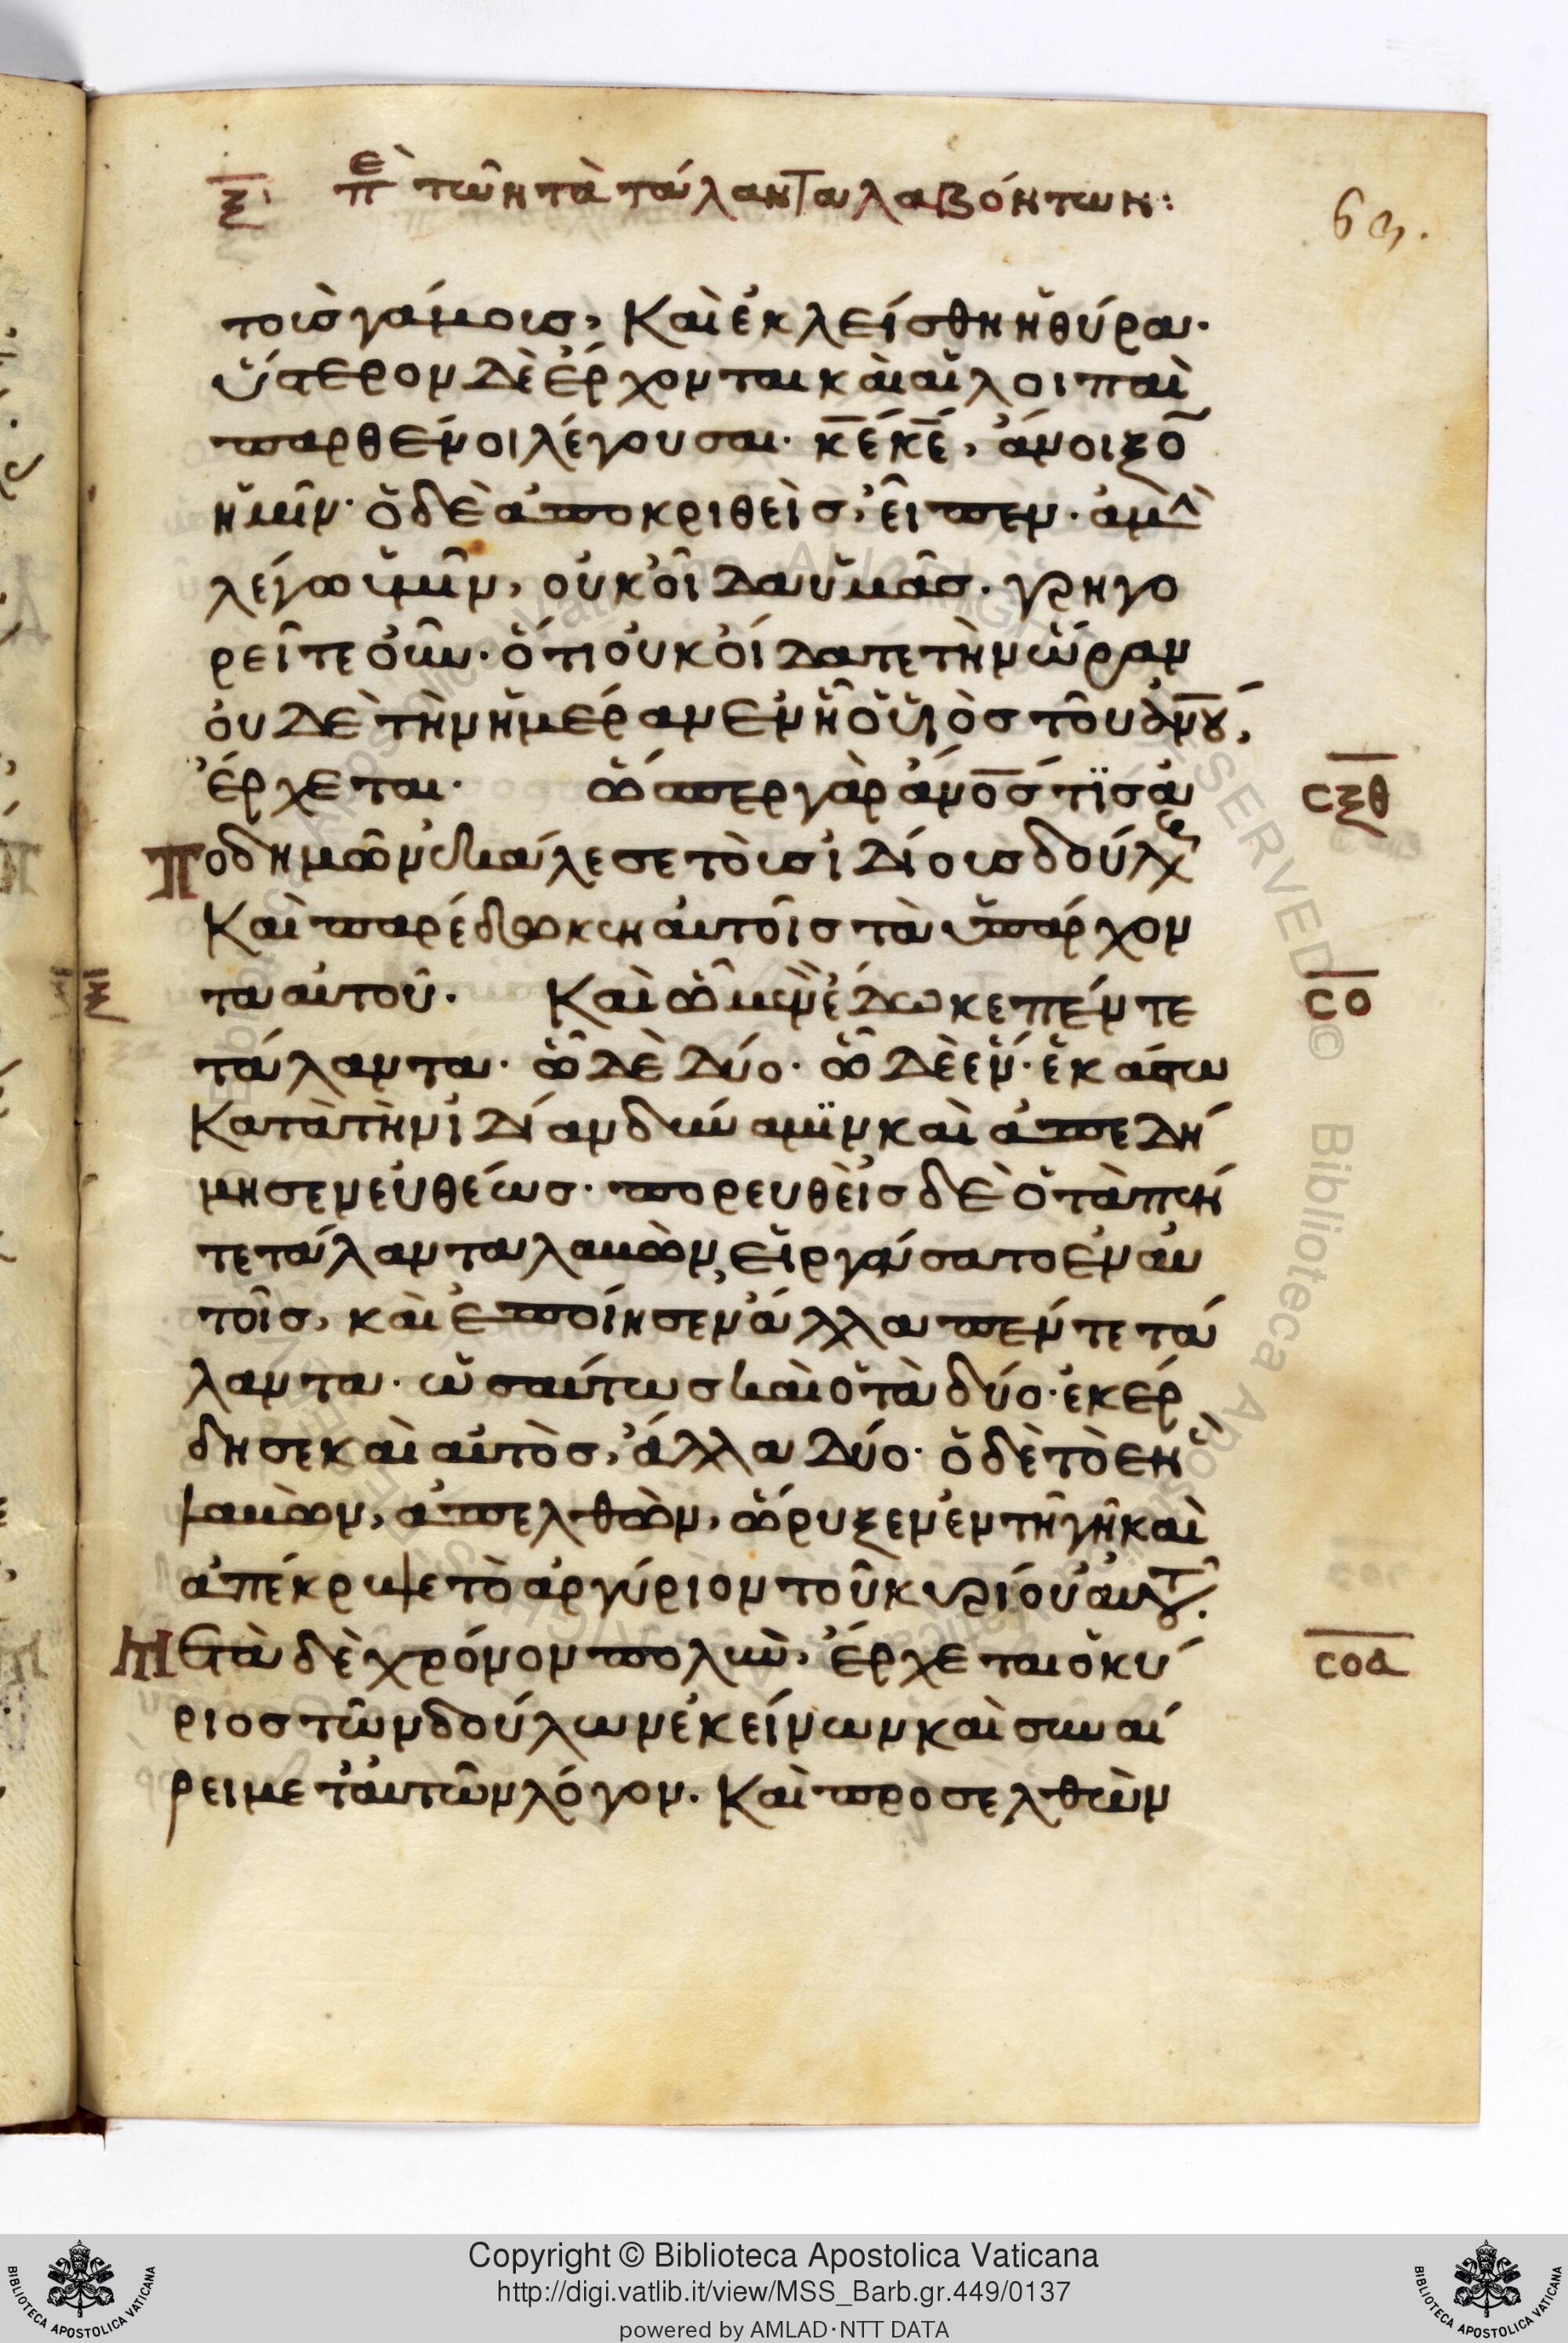 ξ̅ πὲ τῶν τὰ τάλαντα λαβόντων:
63.
τοὺσ γάμουσ, Και ἐκλείσθη ἡ θύρα·
ὕστερον δὲ ἔρχονται καὶ αἱ λοιπαὶ
παρθένοι λέγουσαι· κ̅έ κ̅έ, ἄνοιξο̅
ἡμῖν· ὁ δὲ ἀποκριθεὶσ, εἶπεν· ἀμὴ
λέγω ὑμῖν, οὐκ οἶδα ὑμᾶσ. γρηγο
ρεῖτε οὖν· ὅτι οὐκ οἴδατε τὴν ὥραν
οὐδὲ τὴν ἡμέραν ἐν ᾗ ὁ υἱὸσ τοῦ ἀ̅ν̅ου,
ἔρχεται· ὥσπερ γὰρ ἀ̅ν̅ο̅σ τϊσ ἀ
ϲξθ
ποδημῶν ἐκάλεσε τοὺσ ἰδίουσ δούλουσ
Και παρέδωκεν αὐτοῖσ τὰ ὑπάρχον
τα αὐτοῦ. Καὶ ᾧ μὲν ἔδωκε πέντε
ξ
ϲο
τάλαντα· ᾧ δὲ δύο· ᾧ δὲ ἕν· ἑκάστω
Κατὰ τὴν ἰδίαν δύναμϊν καὶ ἀπεδή
μησεν εὐθέωσ· πορευθεὶσ δὲ ὁ τὰ πέν
τε τάλαντα λαβὼν, εἰργάσατο ἐν αὐ
τοῖσ, καὶ ἐποίησεν ἄλλα πέντε τά
λαντα· ὡσαύτωσ καὶ ὁ τὰ δύο· ἐκέρ
δησε καὶ αὐτὸσ, ἄλλα δύο· ὁ δὲ τὸ ἓν
λαβὼν, ἀπελθὼν, ὤρυξεν ἐν τῇ γῇ καὶ
ἀπέκρυψε τὸ ἀργύριον τοῦ κυρίου αὐτοῦ.
Μετὰ δὲ χρόνον πολὺν, ἔρχεται ὁ κύ
ϲοα
ριοσ τῶν δούλων ἐκείνων καὶ συναί
ρει μετ' αὐτῶν λόγον. Καὶ προσελθὼν
Copyright © Biblioteca Apostolica Vaticana
http://digi.vatlib.it/view/MSS_Barb.gr.449/0137
powered by AMLAD·NTT DATA
BIBLIOTECA APOSTOLICA VATICANA
BIBLIOTECA APOSTOLICA VATICANA